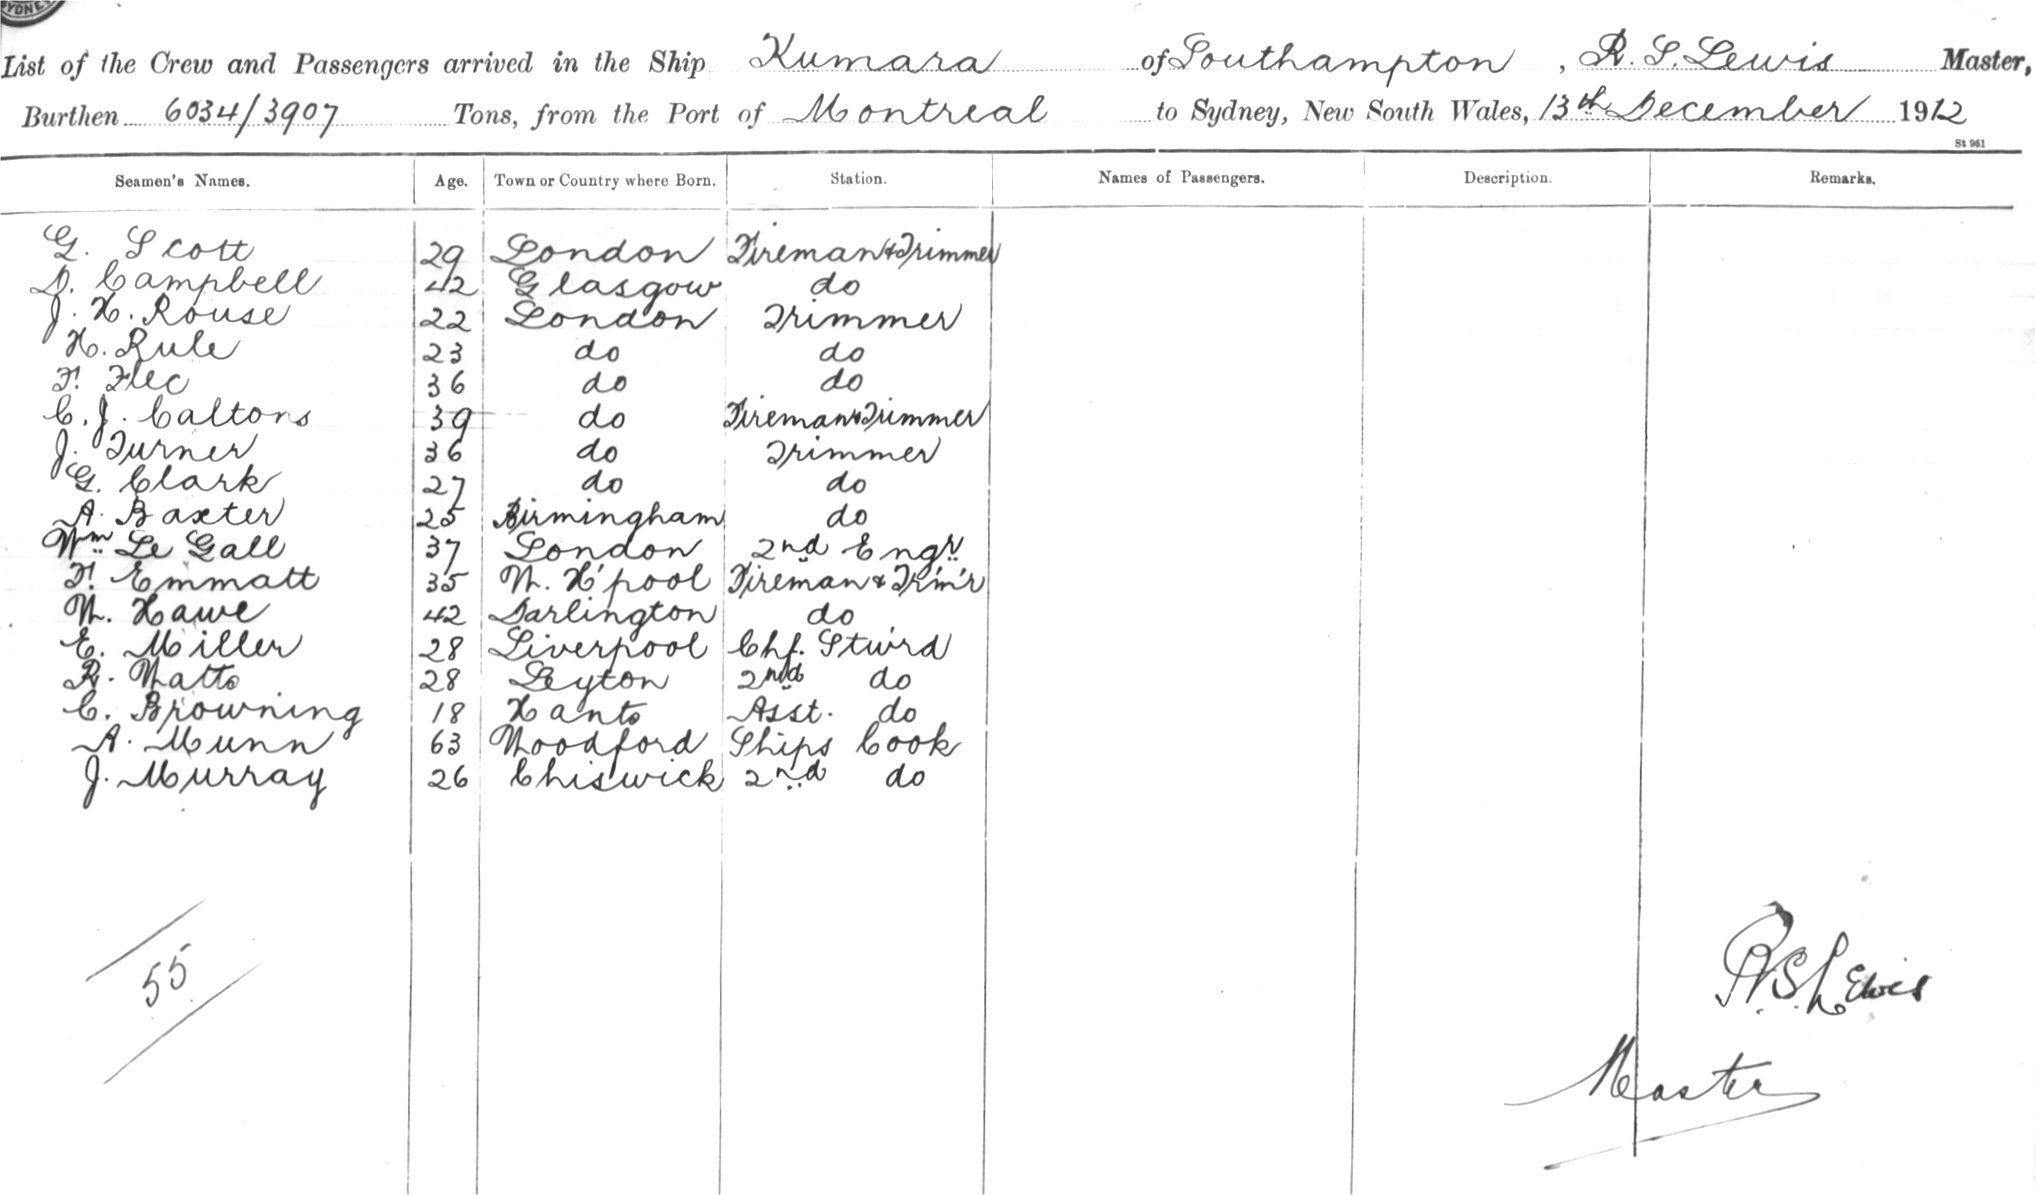 SYDNEY
List of the Crew and Passengers arrived in the Ship Kumara of Southampton, R. S. Lewis Master,
Burthen 6034/3907 Tons, from the Port of Montreal to Sydney, New South Wales, 13th December 1912
St 951
Seamen's Names. Age. Town or Country where Born. Station. Names of Passengers. Description. Remarks.
G. Scott 29 London Fireman & Trimmer
D. Campbell 42 Glasgow do
J. H. Rouse 22 London Trimmer
H. Rule 23 do do
F. Flec 36 do do
C. J. Caltons 39 do Fireman & Trimmer
J. Turner 36 do Trimmer
G. Clark 27 do do
A. Baxter 25 Birmingham do
Wm Le Gall 37 London 2nd Engr
F. Emmatt 35 W. H'pool Fireman & Trim'r
W. Hawe 42 Darlington do
E. Miller 28 Liverpool Chf. Stw'rd
R. Watts 28 Leyton 2nd do
C. Browning 18 Hants Asst. do
A. Munn 63 Woodford Ships Cook
J. Murray 26 Chiswick 2nd do
55
R. S. Lewis
Master